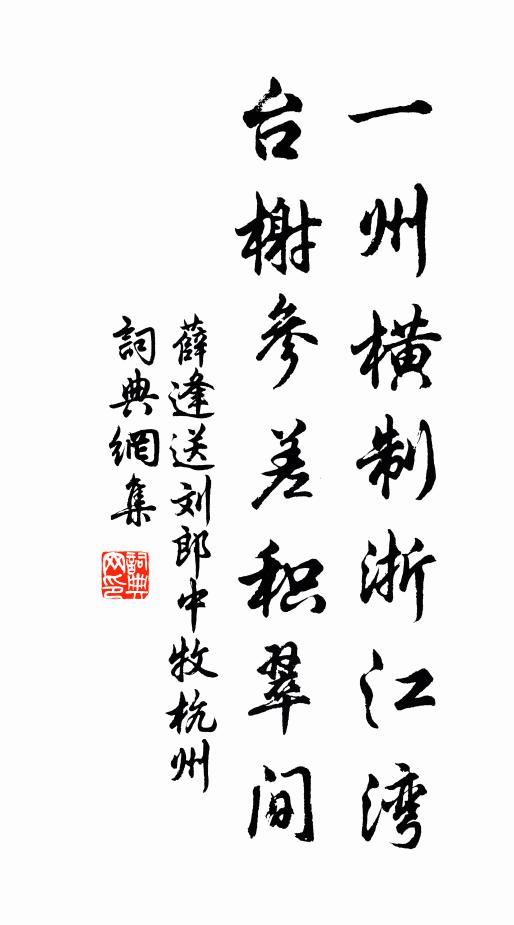 一州横制浙江湾
台榭参差积翠间
薛逢送刘郎中牧杭州
詞典網集
詞典
网印